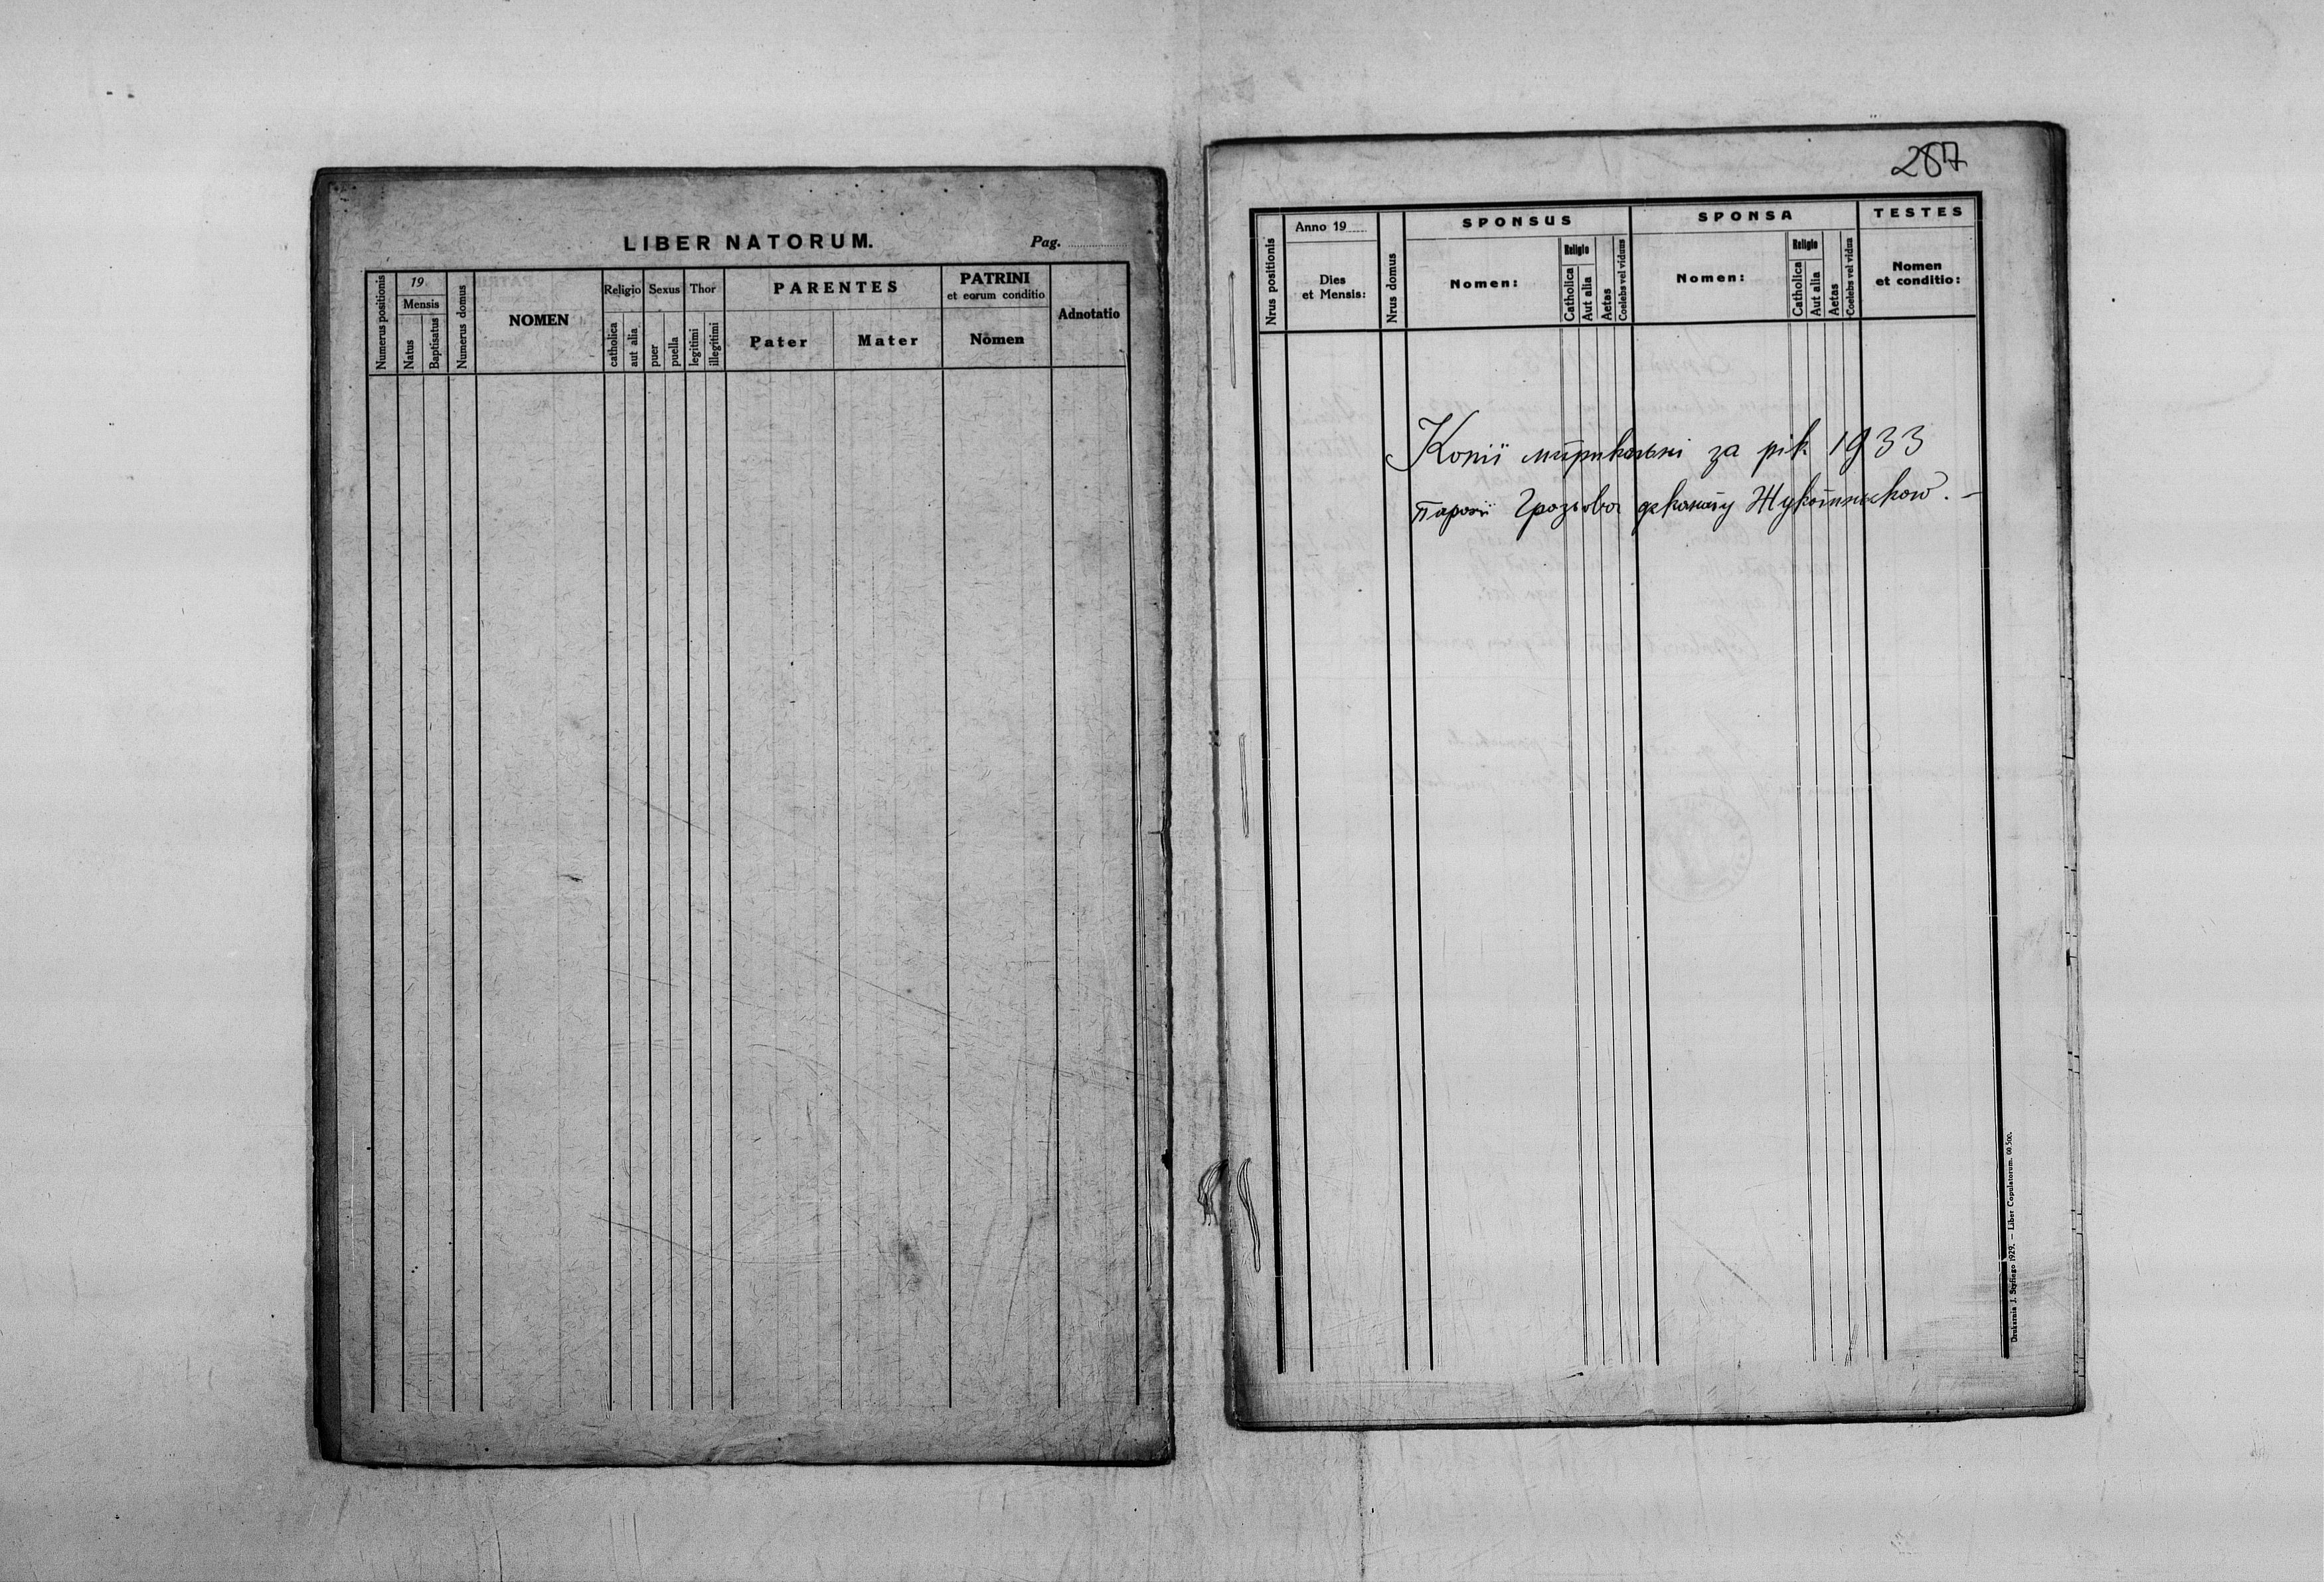 LIBER NATORUM.
Pag.
Numerus positionis
19
Mensis
Natus
Baptisatus
Numerus domus
NOMEN
Religio
catholica
aut alia
Sexus
puer
puella
Thor
legitimi
illegitimi
PARENTES
Pater
Mater
PATRINI
et eorum conditio
Nomen
Adnotatio
287
Nrus positionis
Anno 19
Dies
et Mensis:
Nrus domus
SPONSUS
Nomen:
Religio
Catholica
Aut alia
Aetas
Coelebs vel viduus
SPONSA
Nomen:
Religio
Catholica
Aut alia
Aetas
Coelebs vel vidua
TESTES
Nomen
et conditio:
Копії метрикальні за рік 1933
парохії Грозьова деканату
Drukarnia J. Styfiego 1929. — Liber Copulatorum.